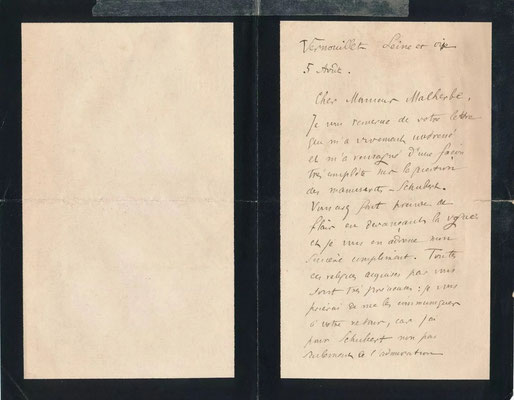 Vernouillet Seine et Oise
5 Août.
Cher Monsieur Malherbe,
Je vous remercie de votre lettre
qui m'a vivement intéressé
et m'a renseigné d'une façon
très complète sur la question
des manuscrits - Schubert.
Vous avez fait preuve de
flair en devançant la vogue
et je vous en adresse mon
sincère compliment. Toutes
ces reliques acquises par vous
sont très précieuses ; je vous
prierai de me les communiquer
à votre retour, car j'ai
pour Schubert non pas
seulement de l'admiration